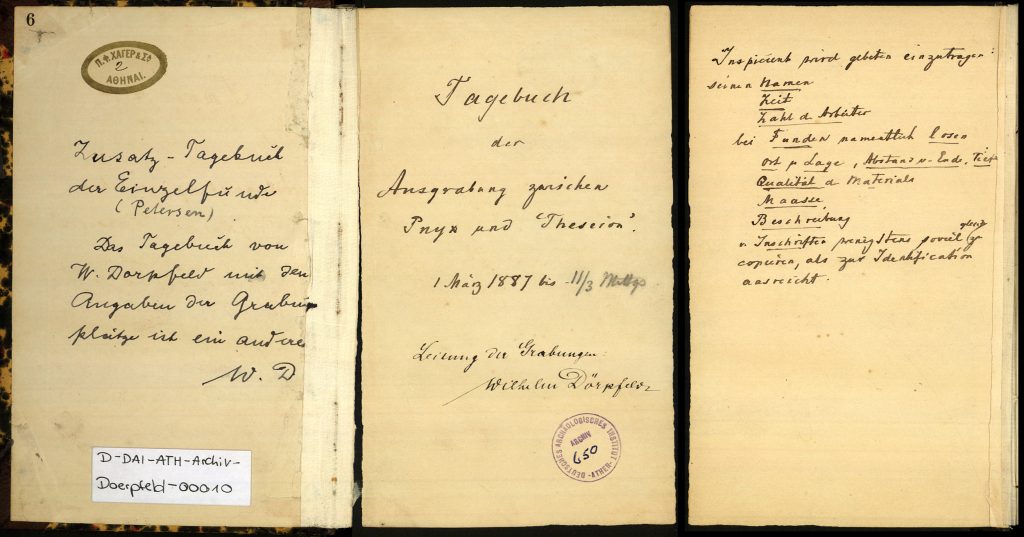 6
Π.Φ. ΧΑΓΕΡ & Σᴬ
2
ΑΘΗΝΑΙ.
Zusatz-Tagebuch
der Einzelfunde
(Petersen)
Das Tagebuch von
W. Dörpfeld mit den
Angaben der Grabungs
plätze ist ein andere
W. D
D-DAI-ATH-Archiv-
Doerpfeld-00010
Tagebuch
der
Ausgrabung zwischen
Pnyx und 'Theseion'.
1 März 1887 bis 11/3
Leitung der Grabungen:
Wilhelm Dörpfeld
DEUTSCHES ARCHÄOLOGISCHES INSTITUT
-ATHEN-
ARCHIV
650
Inspicient wird gebeten einzutragen:
seinen Namen
Zeit
Zahl d. Arbeiter
bei Funden namentlich losen
Ort u Lage, Abstand v. Ende, Tiefe
Qualität d Materials
Maasse
Beschreibung
v. Inschriften wenigstens soviel gleich zu
copiren, als zur Identification
ausreicht.